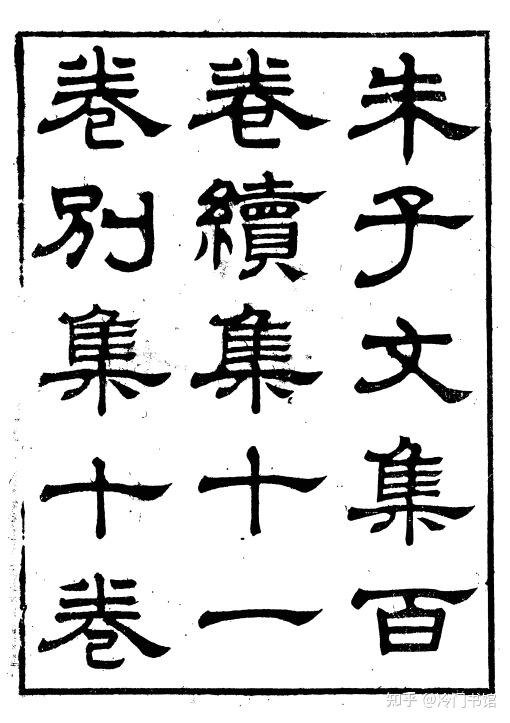 朱子文集百
卷續集十一
卷别集十卷
知乎 @冷门书馆